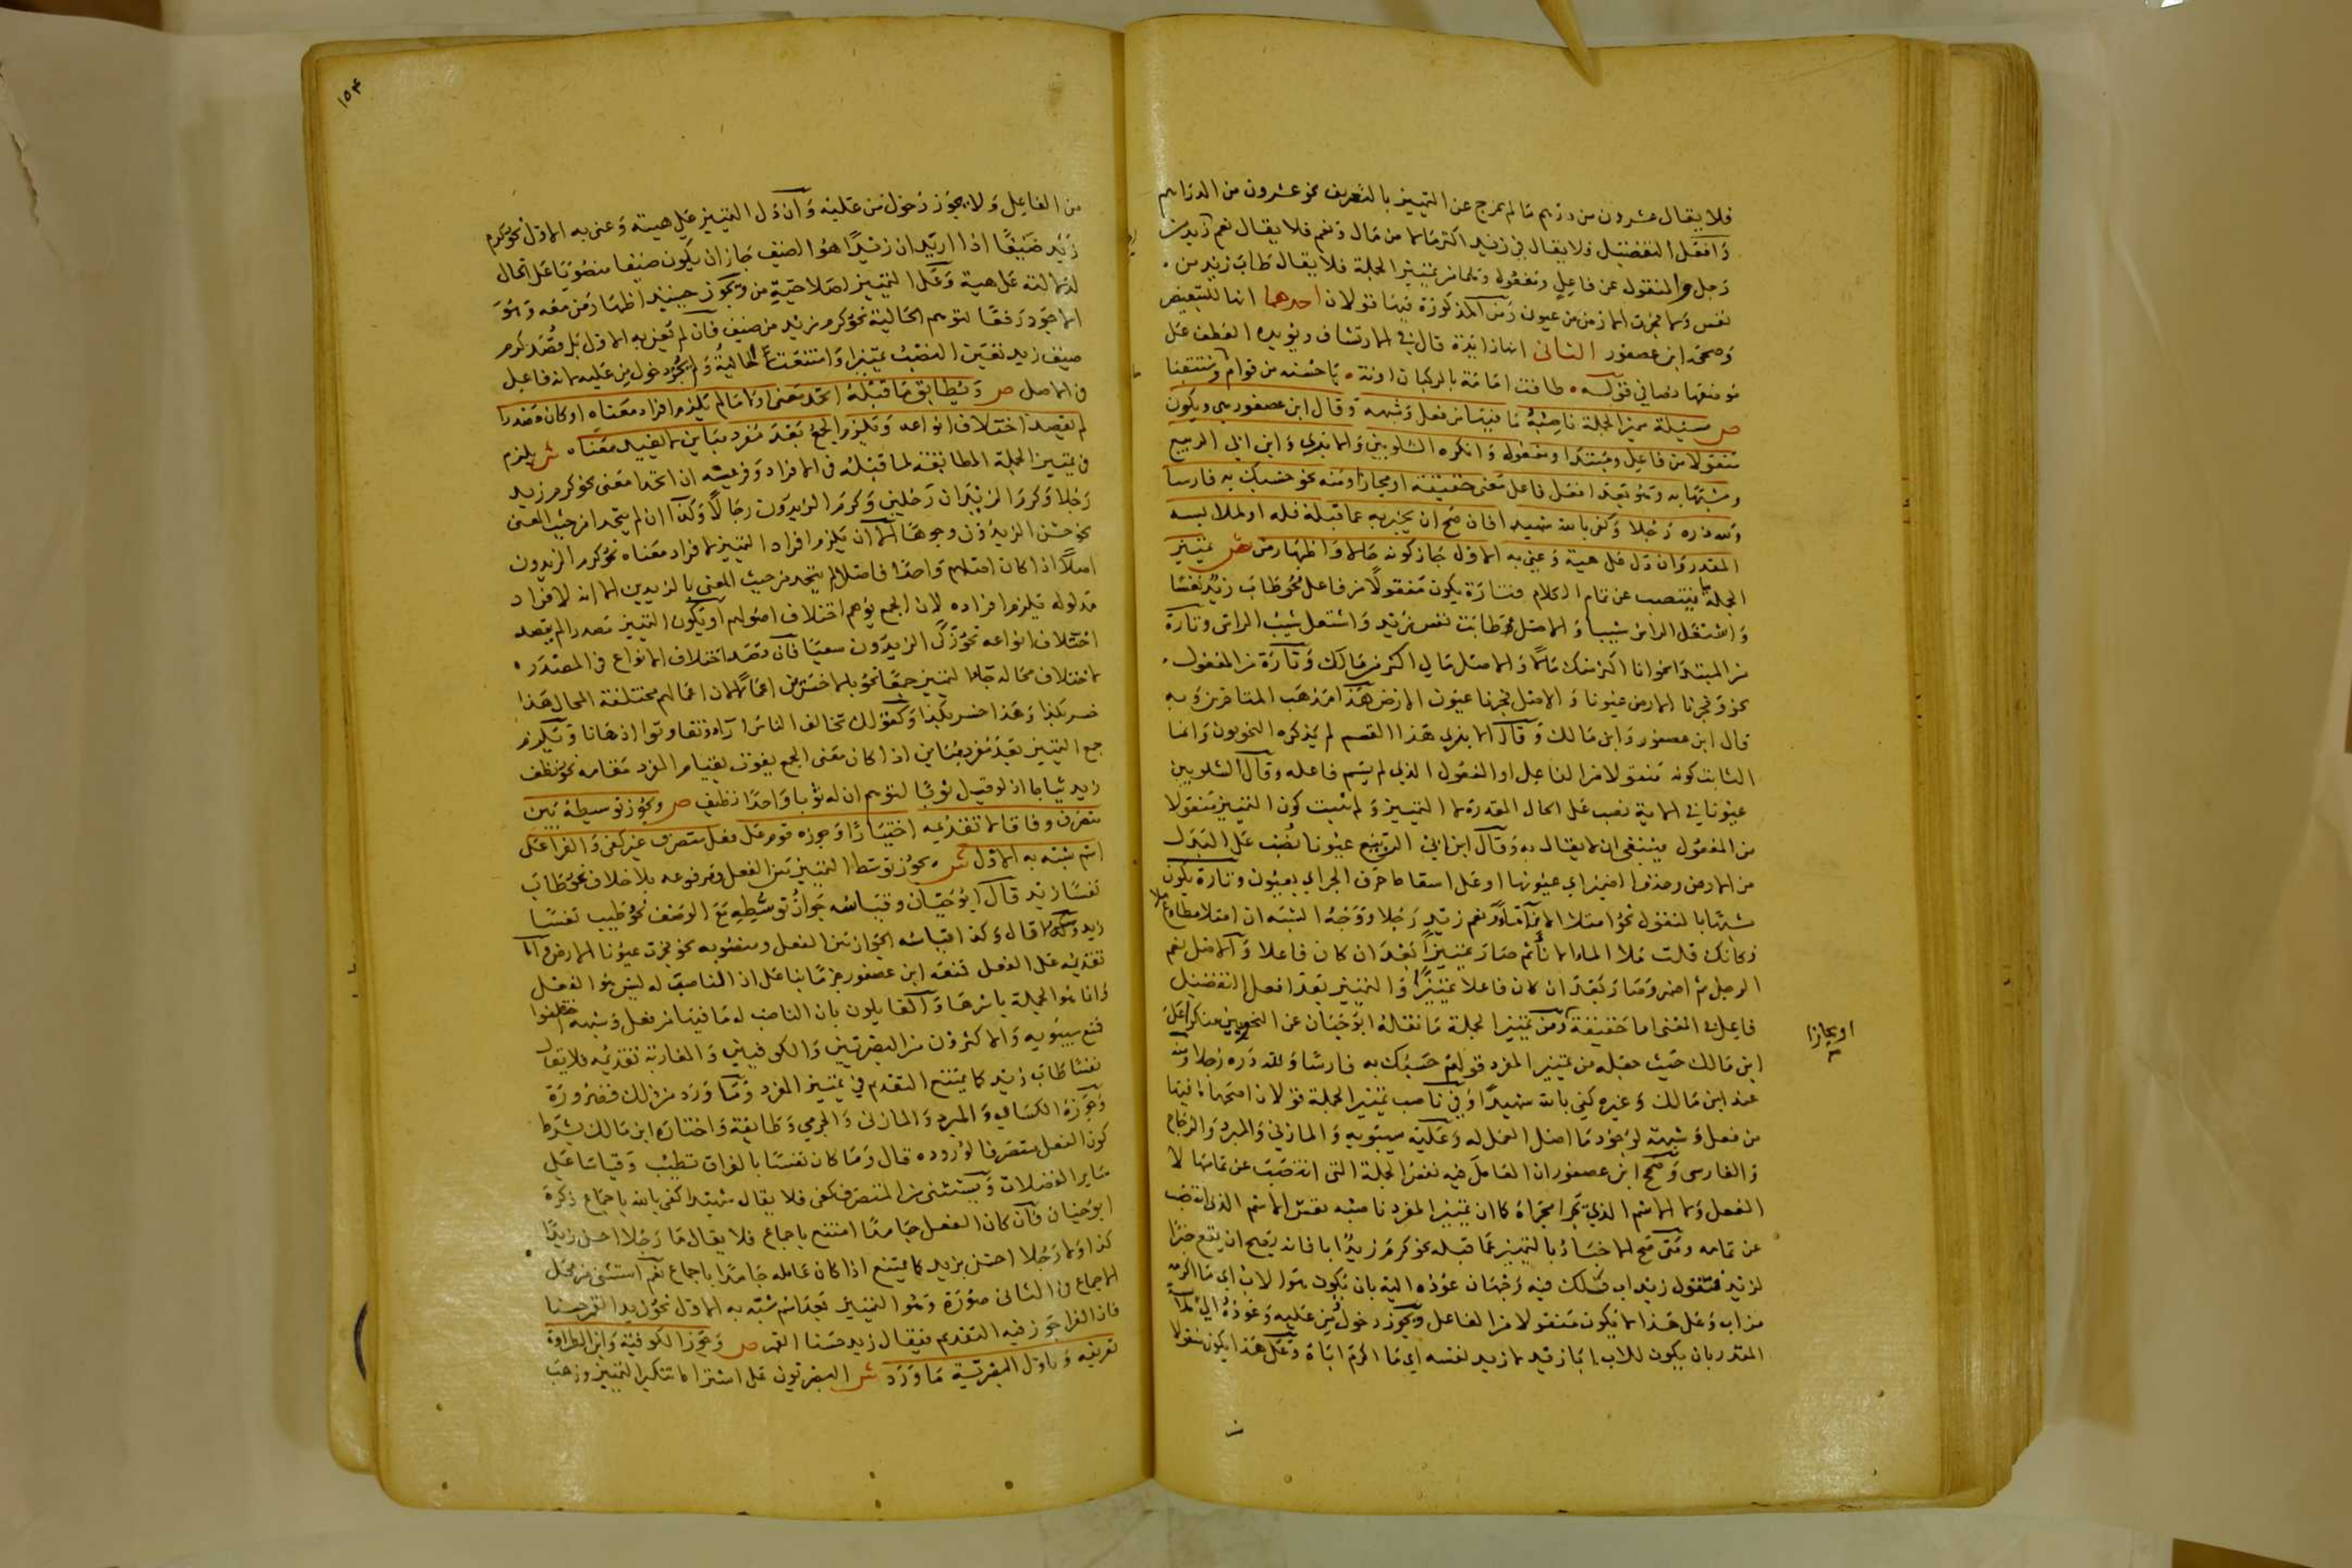 فلا يقال عشرون من درهم ما لم يخرج عن التمييز بالتعريف نحو عشرون من الدراهم
وافعل التفضيل فلا يقال في زيد اكثر مالا من مال ونعم فلا يقال نعم زيد من
رجل والمنقول عن فاعل ومفعول وكما من تمييز الجملة فلا يقال طاب زيد من
نفس ولا فجرت الارض من عيون ومن المذكورة فيها قولان احدهما انها للتبعيض
وصححه ابن عصفور الثانى انها زائدة قال في الارتشاف ويؤيده العطف على
موضعها نصبا في قوله طافت امامة بالركبان اونة يا حسنه من قوام ومنتقبا
ص مسئلة مميز الجملة ناصبه ما فيها من فعل وشبهه وقال ابن عصفور هي ويكون
منقولا من فاعل ومبتدا ومفعول وانكره الشلوبين والابدي وابن ابي الربيع
ومشبها به وهو بعد افعل فاعل معنى حقيقة او مجازا ومنه نحو حسبك به فارسا
ولله دره رجلا وكفى بالله شهيدا فان صح ان يخبر به عما قبله فله او لملابسه
المقدر وان دل على هيئة وعنى به الاول جاز كونه حالا واظهار من ش تمييز
الجملة ما ينتصب عن تمام الكلام فتارة يكون منقولا من فاعل نحو طاب زيد نفسا
واشتعل الراس شيبا والاصل طابت نفس زيد واشتعل شيب الراس وتارة
من المبتدا نحو انا اكثر منك مالا والاصل مالي اكثر من مالك وتارة من المفعول
نحو وفجرنا الارض عيونا والاصل فجرنا عيون الارض هذا مذهب المتاخرين وبه
قال ابن عصفور وابن مالك وقال الابدي هذا القسم لم يذكره النحويون وانما
الثابت كونه منقولا من الفاعل او المفعول الذي لم يسم فاعله وقال الشلوبين
عيونا في الاية نصب على الحال المقدرة لا التمييز ولم يثبت كون التمييز منقولا
من المفعول فينبغي ان لا يقال به وقال ابن ابي الربيع عيونا نصب على البدل
من الارض وحذف الضمير اي عيونها او على اسقاط حرف الجر اي بعيون وتارة يكون
مشبها بالمنقول نحو امتلا الاناء ماء ونعم زيد رجلا ووجه الشبه ان امتلا مطاوع ملا
فكانك قلت ملا الماء الاناء ثم صار تمييزا بعد ان كان فاعلا والاصل نعم
الرجل ثم اضمر وصار بعد ان كان فاعلا تمييزا والتمييز بعد افعل التفضيل
فاعل في المعنى اما حقيقة ومن تمييز الجملة ما نقله ابو حيان عن النحويين منكرا على
او مجازا
ابن مالك حيث جعله من تمييز المفرد قولهم حسبك به فارسا ولله دره رجلا ومنه
عند ابن مالك وغيره كفى بالله شهيدا وفي ناصب تمييز الجملة قولان اصحهما ما فيها
من فعل وشبهه لوجود ما اصل العمل له وعليه سيبويه والمازني والمبرد والزجاج
والفارسي وصحح ابن عصفور ان العامل فيه نفس الجملة التي انتصب عن تمامها لا
الفعل ولا الاسم الذي جرا مجراه كما ان تمييز المفرد ناصبه نفس الاسم الذي انتصب
عن تمامه ومتى صح الاخبار بالتمييز عما قبله نحو كرم زيد ابا فانه يصح ان يقع خبرا
لزيد فتقول زيد اب فلك فيه وجهان عوده اليه بان يكون هو الاب اي ما اكرمه
من اب وعلى هذا لا يكون منقولا من الفاعل ويجوز دخول من عليه وعوده الى الاب
المقدر بان يكون للاب اباز قيد لا زيد نفسه اي ما اكرم اباه وعلى هذا يكون منقولا
١٥٤
من الفاعل ولا يجوز دخول من عليه وان دل التمييز على هيئة وعنى به الاول نحو كرم
زيد ضيفا اذا اريد ان زيدا هو الضيف جاز ان يكون ضيفا منصوبا على الحال
لدلالته على هيئة وعلى التمييز لصلاحية من ويجوز حينئذ اظهار من معه وهو
الاجود رفعا لتوهم الحالية نحو كرم زيد من ضيف فان لم تعن به الاول بل قصد كرم
ضيف زيد تعين النصب تمييزا وامتنعت الحالية ولم يجز دخول من عليه لانه فاعل
في الاصل ص ويطابق ما قبله ان اتحد معنى او لا ما لم يلزم افراد معناه او كان مصدرا
لم يقصد اختلاف انواعه ويلزم الجمع بعد مفرد مباين لا يفيد معناه ش يلزم
في تمييز الجملة المطابقة لما قبله في الافراد وفرعيه ان اتحدا معنى نحو كرم زيد
رجلا وكرم الزيدان رجلين وكرم الزيدون رجالا وكذا ان لم يتحد من حيث المعنى
نحو حسن الزيدون وجوها الا ان يلزم افراد التمييز لافراد معناه نحو كرم الزيدون
اصلا اذا كان اصلهم واحدا فاصلا لم يتحد من حيث المعنى بالزيدين الا انه لافراد
مدلوله يلزم افراده لان الجمع يوهم اختلاف اصولهم او يكون التمييز مصدرا لم يقصد
اختلاف انواعه نحو زكى الزيدون سعيا فان قصد اختلاف الانواع في المصدر
لاختلاف محاله جاء التمييز جمعا نحو بالاخسرين اعمالا لان اعمالهم مختلفة المحال هذا
خسر بكذا وهذا خسر بكذا وكقولك تخالف الناس اراء وتفاوتوا اذهانا ويلزم
جمع التمييز بعد مفرد مباين اذا كان معنى الجمع يفوت بقيام المفرد مقامه نحو نظف
زيد ثيابا اذ لو قيل ثوبا لتوهم ان له ثوبا واحدا نظيف ص ويجوز توسيطه بين
متصرف وفاقا لا تقديمه اختيارا وجوزه قوم على فعل متصرف غير كفى والفرا على
اسم شبه به الاول ش يجوز توسط التمييز بين الفعل ومرفوعه بلا خلاف نحو طاب
نفسا زيد قال ابو حيان وقياسه جواز توسيطه مع الوصف نحو طيب نفسا
زيد قال وكذا قياسه الجواز بين الفعل ومنصوبه نحو فجرت عيونا الارض واما
تقديمه على الفعل فمنعه ابن عصفور جزما بناء على ان الناصب له ليس هو الفعل
وانما هو الجملة باسرها والقايلون بان الناصب له ما فيها من فعل وشبهه اختلفوا
فمنع سيبويه والاكثرون من البصريين والكوفيين والمغاربة تقديمه فلا يقال
نفسا طاب زيد كما يمتنع التقديم في تمييز المفرد وما ورد من ذلك فضرورة
وجوزه الكسائي والمبرد والمازني والجرمي وطائفة واختاره ابن مالك بشرط
كون الفعل متصرفا لوروده قال وما كان نفسا بالفراق تطيب وقياسا على
سائر الفضلات ويستثنى من المتصرف كفى فلا يقال شهيدا كفى بالله باجماع ذكره
ابو حيان فان كان الفعل جامدا امتنع باجماع فلا يقال ما رجلا احسن زيدا
كذا ولا رجلا احسن بزيد كما يمتنع اذا كان عامله جامدا باجماع نعم استثنى من محل
الاجماع في الثانى صورة وهو التمييز بعد اسم شبه به الاول نحو زيد القمر حسنا
فان الفرا جوز فيه التقديم فيقال زيد حسنا القمر ص وجوز الكوفية وابن الطراوة
تعريفه وتاول البصرية ما ورد ش البصريون على اشتراط تنكير التمييز وذهب